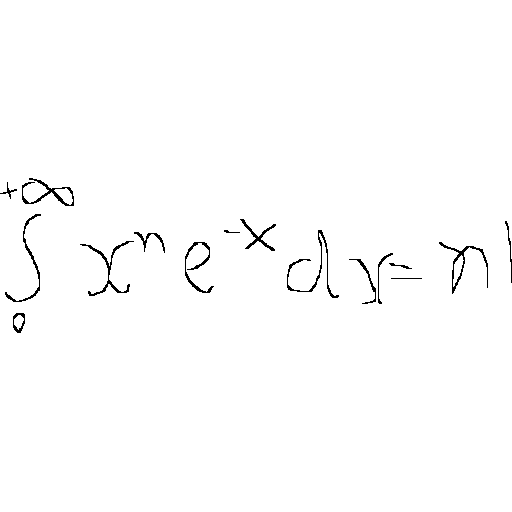 \int_{0}^{+\infty} x^n e^{-x} dx = n!